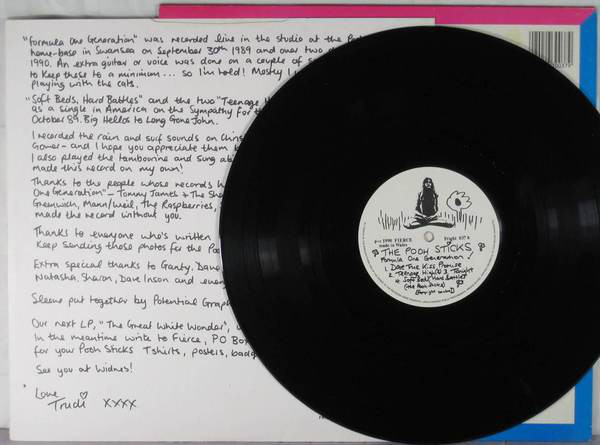 "Formula One Generation" was recorded live in the studio at the
home-base in Swansea on September 30th 1989 and over two
1990. An extra guitar or voice was done on a couple of
to keep these to a minimum... so I'm told! Mostly I
playing with the cats.
"Soft Beds, Hard Battles" and the two "Teenage
as a single in America on the Sympathy For
October 89. Big Hellos to Long Gone John.
I recorded the rain and surf sounds on
Gower - and I hope you appreciate them
I also played the tambourine and sung
made this record on my own!
Thanks to the people whose records
One Generation" - Tommy James & The
Greenwich, Mann/Weil, The Raspberries,
made the record without you.
Thanks to everyone who's written
Keep sending those photos for the
Extra special thanks to Ganty, Dave
Natasha, Sharon, Dave Inson and
Sleeve put together by Potential
Our next LP, "The Great White Wonder",
In the meantime write to Fierce, PO Box
for your Pooh Sticks T shirts, posters,
See you at Widnes!
Love
Trudi xxxx
℗+© 1990 FIERCE
made in Wales
Fright 037 A
THE POOH STICKS
Formula One Generation!
1. Dare True Kiss Promise
2. Teenage High 3. Tonight
4. Soft Beds, Hard Battles